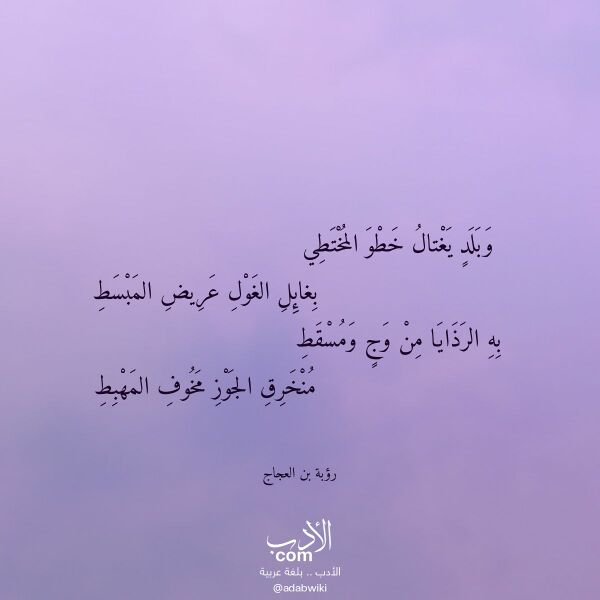 وَبَلَدٍ يَغْتالُ خَطْوَ المُخْتَطِي
بِغائِلِ الغَوْلِ عَرِيضِ المَبْسَطِ
بِهِ الرَذَايَا مِنْ وَجٍ وَمُسْقَطِ
مُنْخَرِقِ الجَوْزِ مَخُوفِ المَهْبِطِ
رؤبة بن العجاج
الأدب
.com
الأدب .. بلغة عربية
@adabwiki